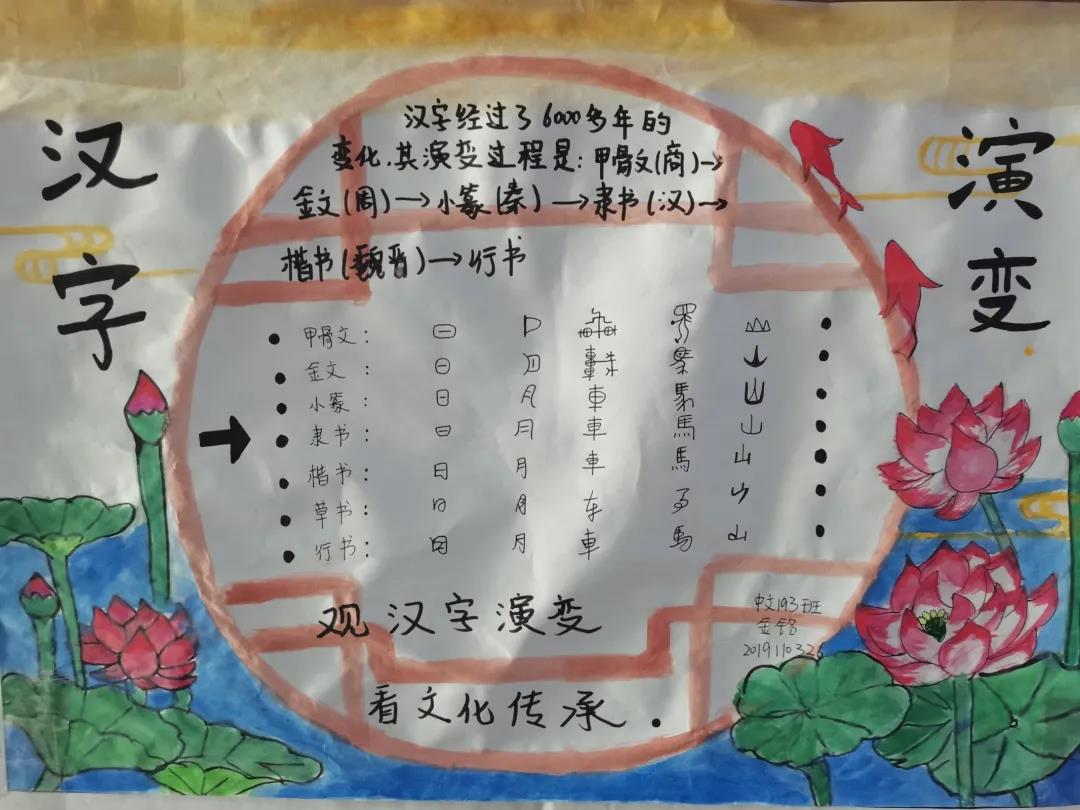 汉字
演变
汉字经过了6000多年的
变化.其演变过程是:甲骨文(商)→
金文(周)→小篆(秦)→隶书(汉)→
楷书(魏晋)→行书
甲骨文:
金文:
小篆: 日 車
隶书: 日 月 車 馬 山
楷书: 日 月 車 馬 山
草书: 日 月 车 马 山
行书: 日 月 車 馬 山
观汉字演变
看文化传承.
中文193班
金铭
2019110326